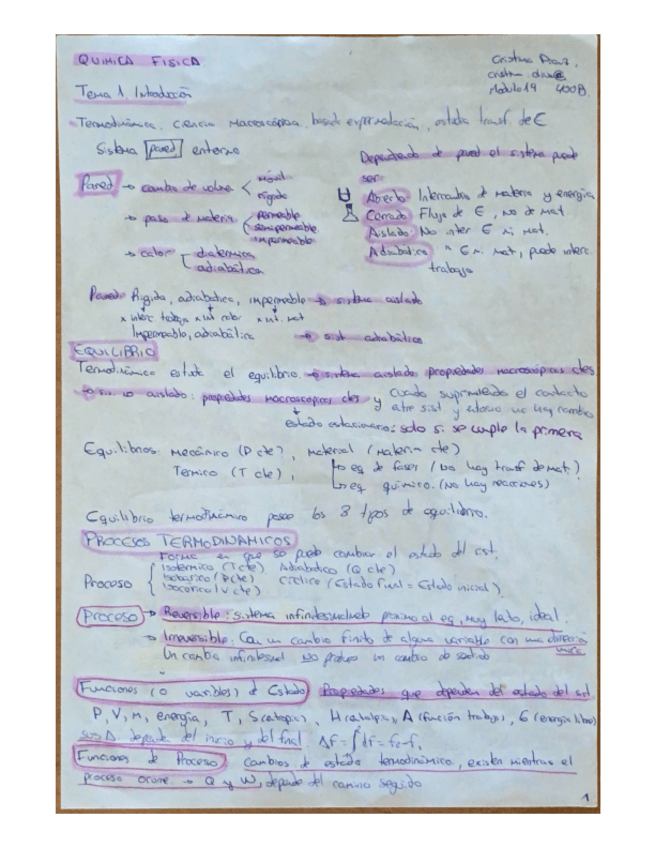 QUIMICA FISICA
Cristina Díaz.
Modulo 19 400B.
Tema 1. Introducción
Termodinámica. Ciencia macroscópica, basada experimentación, estudia transf. de E
Sistema pared entorno
Dependiendo de pared el sistema puede
ser:
Pared → cambio de volumen < móvil
rígida
→ paso de materia permeable
semipermeable
impermeable
→ calor diatérmica
adiabática
Abierto: Intercambio de materia y energía
Cerrado: Flujo de E, no de mat
Aislado: No inter E ni mat.
Adiabático " E ni mat, puede interc.
trabajo
Pared: Rígida, adiabatica, impermeable → sistema aislado
x interc trabajo x int calor x int. mat
Impermeable, adiabática → sist adiabático
EQUILIBRIO
Termodinámica estudia el equilibrio. → sistema aislado propiedades macroscópicas ctes
→ sis. no aislado: propiedades macroscópicas ctes y cuando suprimiendo el contacto
entre sist y entorno no hay cambio
estado estacionario: solo si se cumple la primera
Equilibrios: Mecánico (P cte), Material (Materia cte)
Termico (T cte), → eq de fases (No hay transf de mat)
→ eq químico. (No hay reacciones)
Equilibrio termodinámico posee los 3 tipos de equilibrio.
PROCESOS TERMODINAMICOS
Forma en que se puede cambiar el estado del sist.
Proceso Isotérmico (T cte) Adiabático (Q cte)
Isobarico (P cte) Cíclico (Estado final = Estado inicial)
Isocorico (V cte)
Proceso → Reversible: sistema infinitesimalmente proximo al eq, muy lento, ideal.
→ Irreversible. Con un cambio finito de alguna variable con una dirección
única
Un cambio infinitesimal no produce un cambio de sentido
Funciones (o variables) de Estado Propiedades que dependen del estado del sist
P, V, m, energía, T, S (entropía), H (entalpía), A (función trabajo), G (energía libre)
sus Δ depende del inicio y del final Δf = ∫df = f₂-f₁
Funciones de Proceso cambios de estado termodinámico, existen mientras el
proceso ocurre → Q y W, depende del camino seguido
1